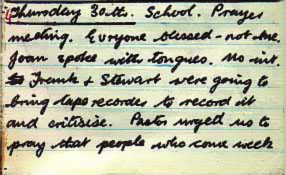 Thursday 30th. School. Prayer
meeting. Everyone blessed - not me.
Joan spoke with tongues. No int.
Frank & Stewart were going to
bring tape recorder to record it
and critisise. Pastor urged us to
pray that people who come week